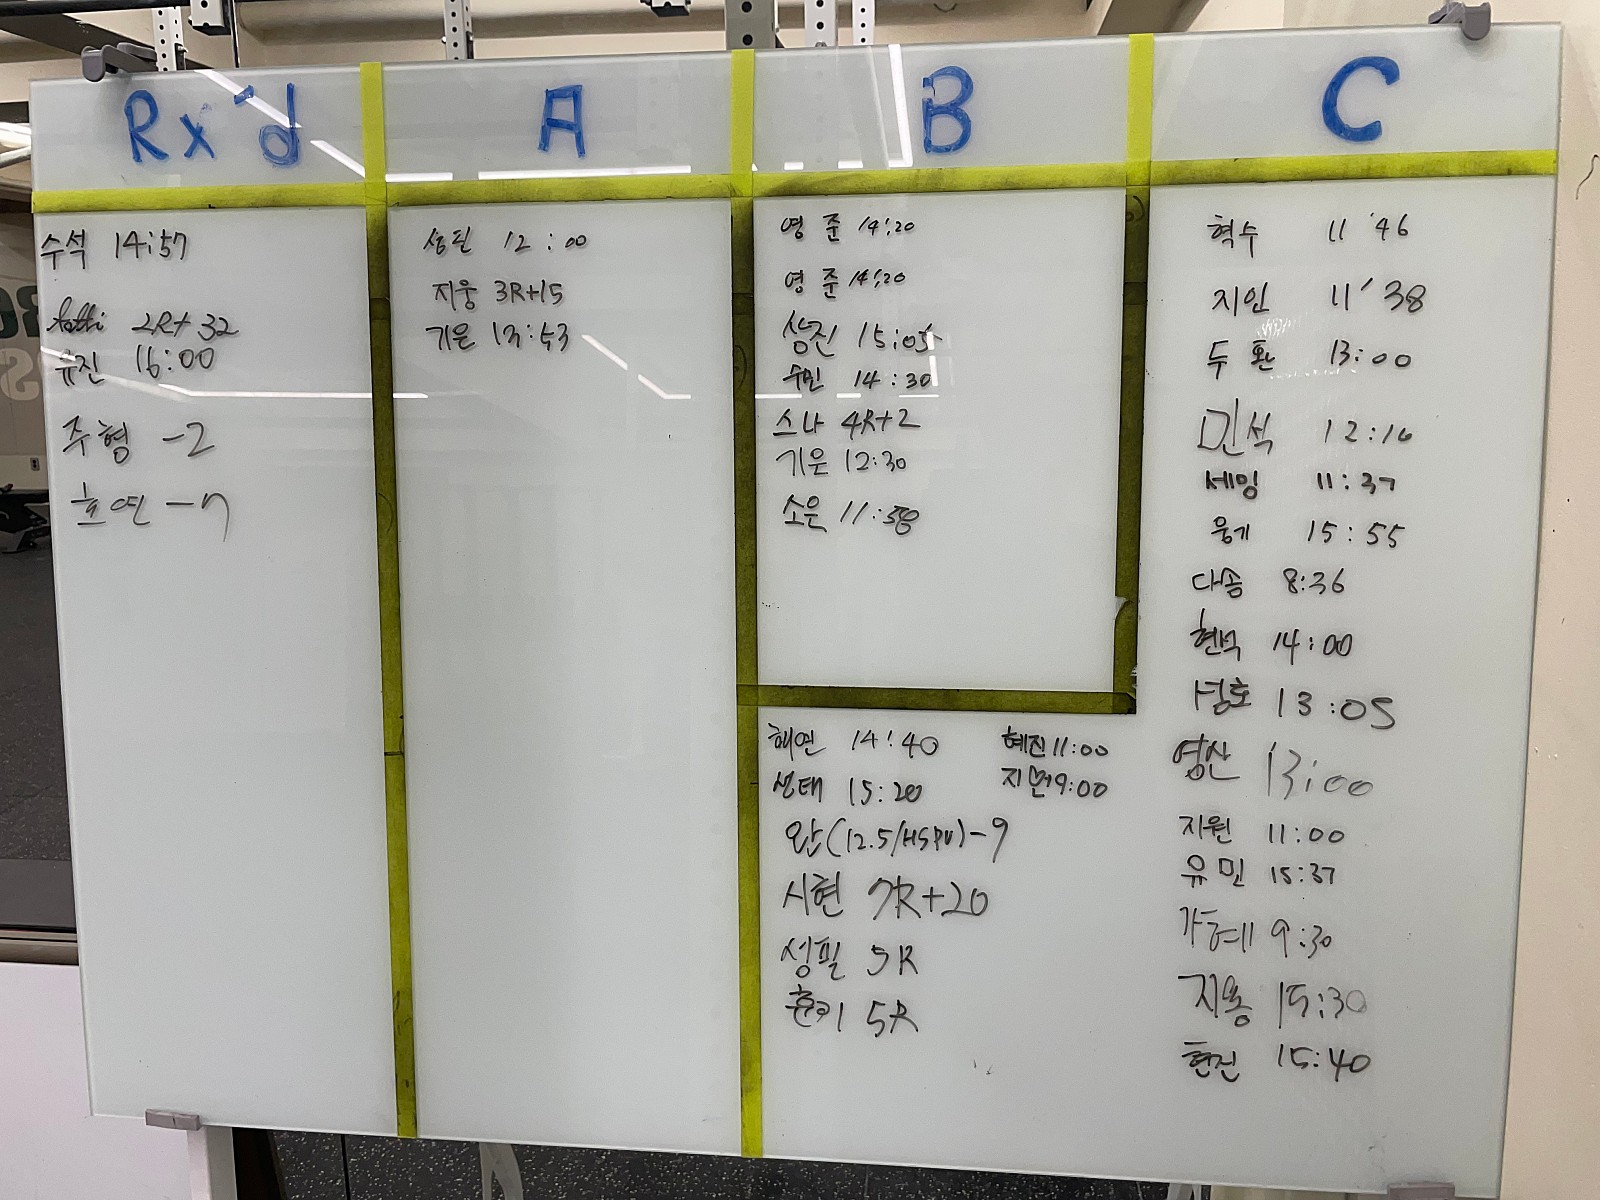 Rx'd
수석 14:57
2R+32
유진 16:00
주형 -2
호연 -7
A
성필 12:00
지웅 3R+15
기은 13:53
B
영준 14:20
영준 14:20
상진 15:05
수민 14:30
스나 4R+2
기은 12:30
소은 11:58
해연 14:40
혜진 11:00
성태 15:20
9:00
완(12.5/HSPU)-9
시현 7R+20
성필 5R
훈키 5R
C
혁수 11'46
지인 11'38
두환 13:00
민석 12:16
세밍 11:37
웅기 15:55
다송 8:36
현석 14:00
성호 13:05
영산 13:00
지원 11:00
유민 15:37
가혜 9:30
지용 15:30
현진 15:40